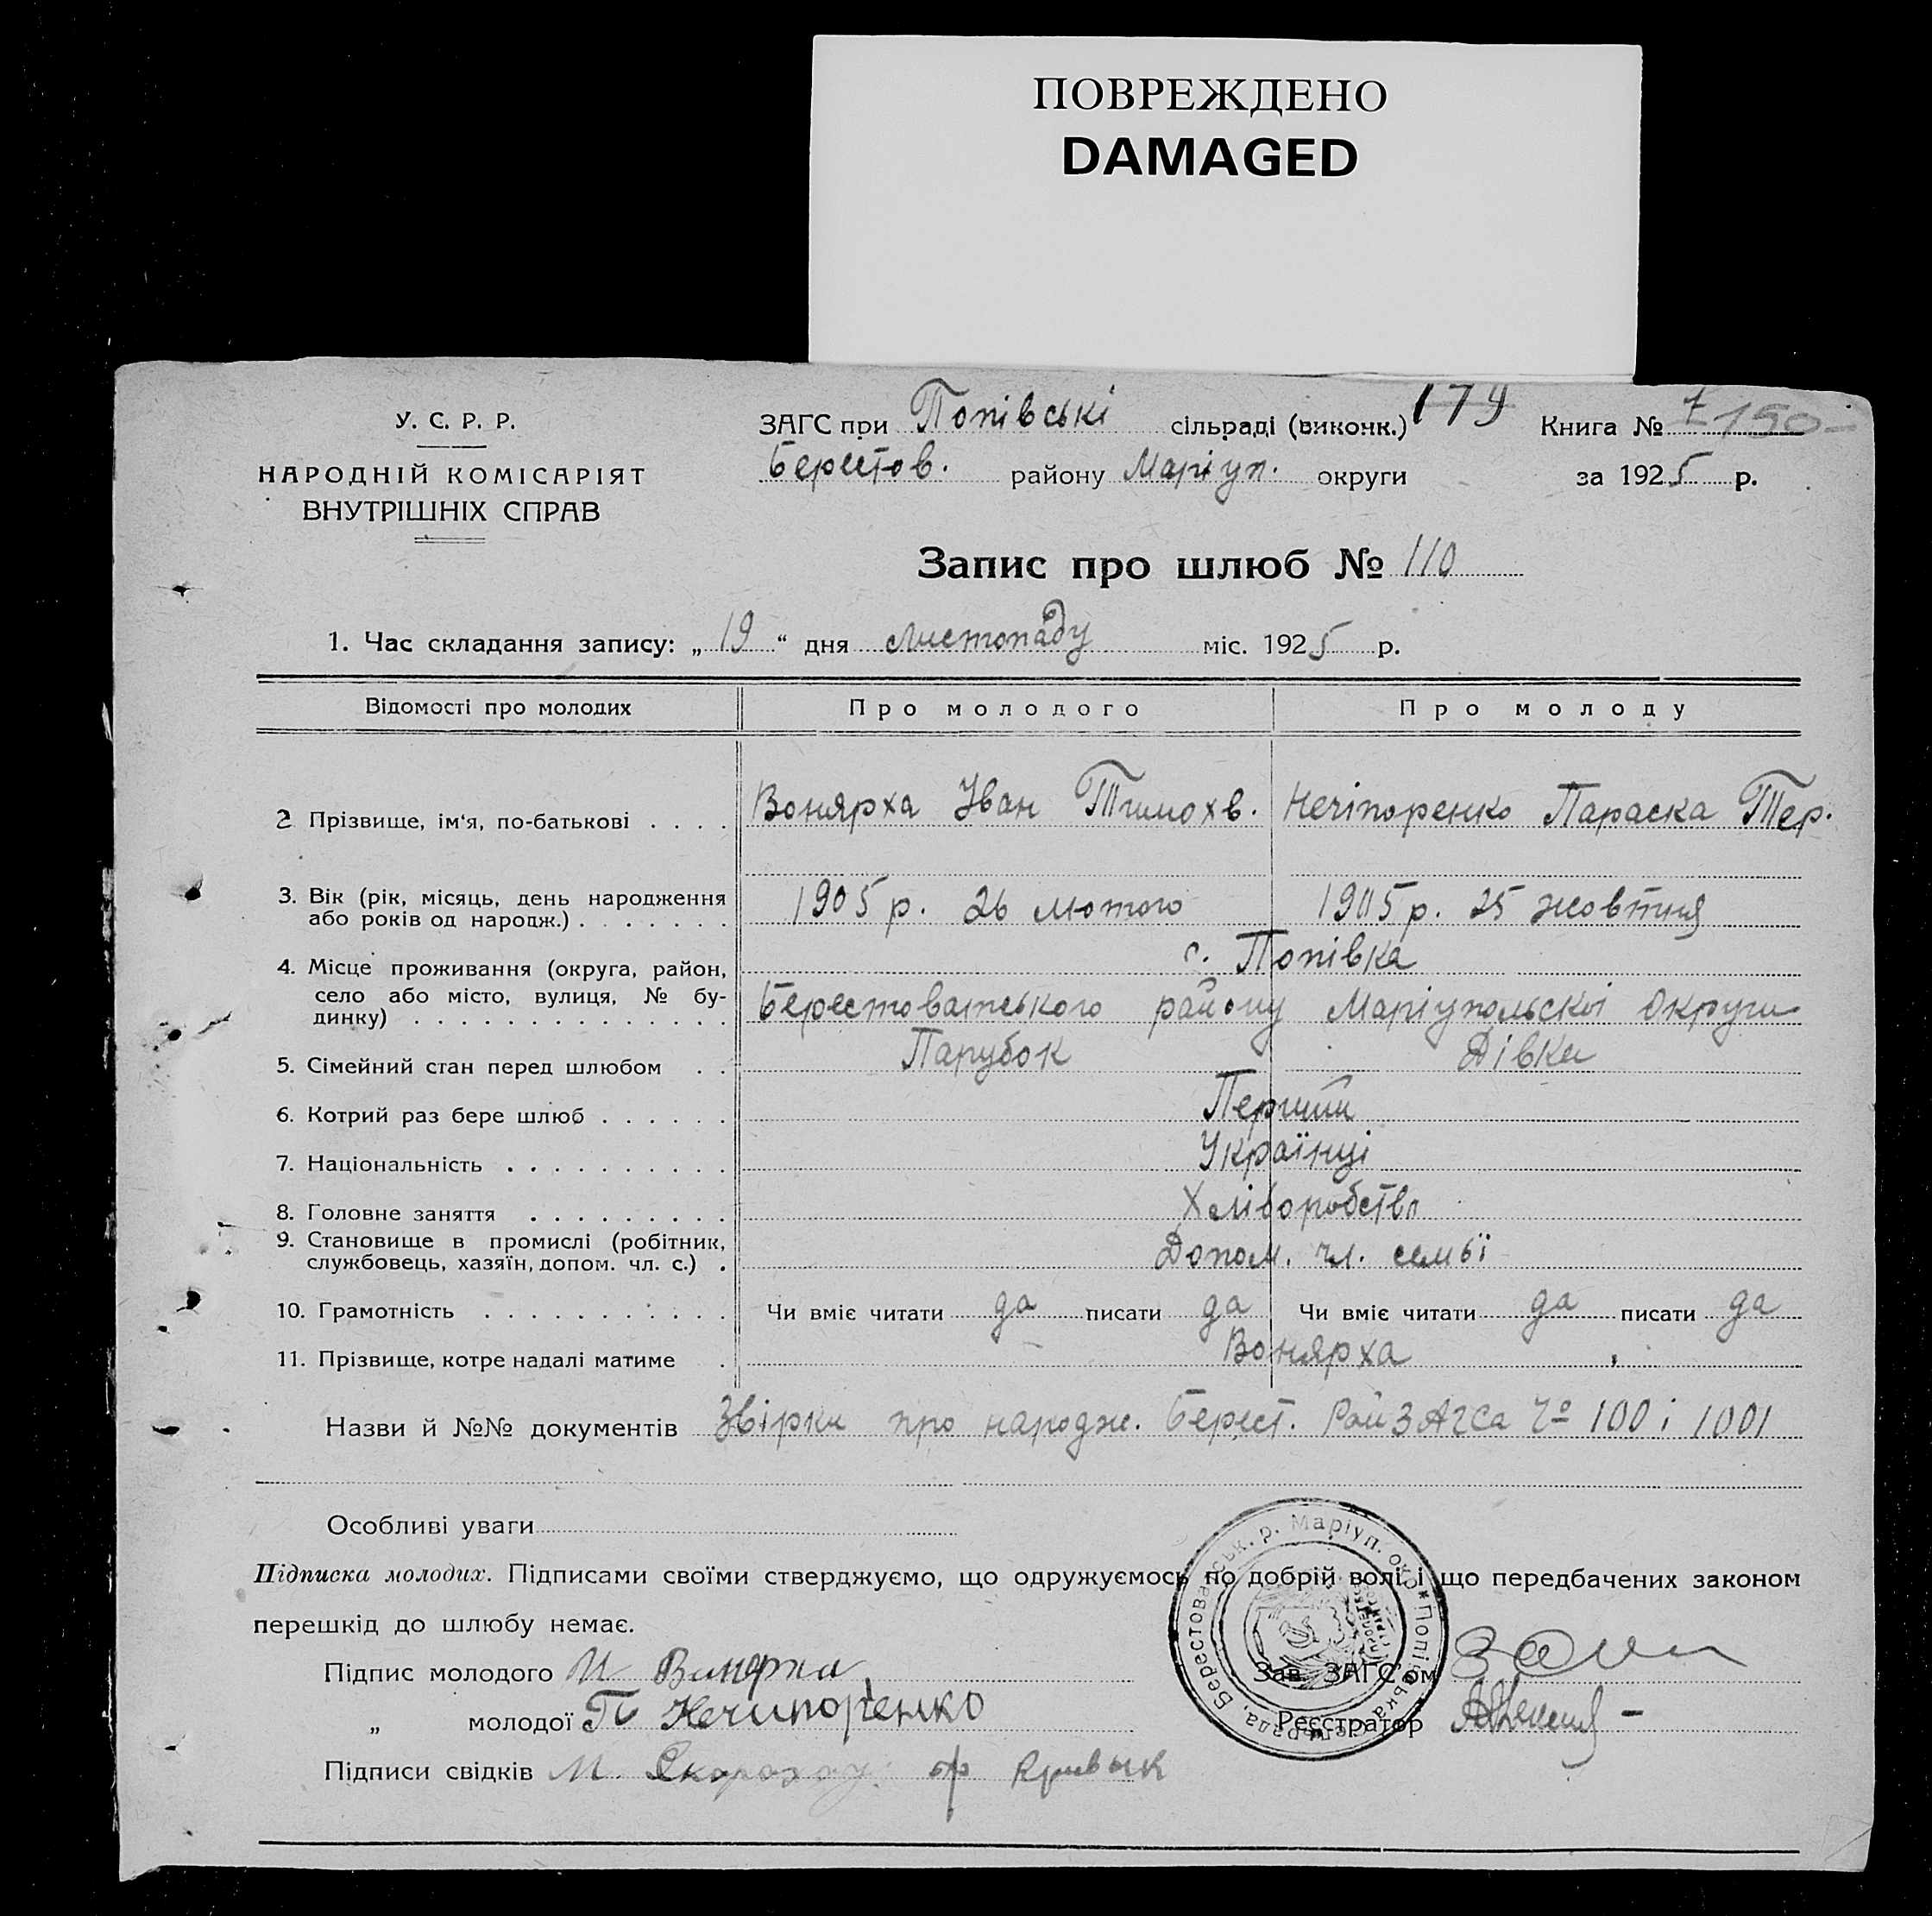 ПОВРЕЖДЕНО
DAMAGED
У. С. Р. Р.
НАРОДНІЙ КОМІСАРІЯТ
ВНУТРІШНІХ СПРАВ
ЗАГС при Попівські сільраді (виконк.) 179 Книга №
Берестов. району Маріуп. округи за 1925 р.
Запис про шлюб № 110
1. Час складання запису: „ 19 “ дня Листопаду міс. 1925 р.
Відомості про молодих Про молодого Про молоду
2 Прізвище, ім‘я, по-батькові . . . . Вонярха Іван Тимохв. Нечіпоренко Параска Тер.
3. Вік (рік, місяць, день народження
або років од народж.) . . . . . . . 1905 р. 26 лютого 1905 р. 25 жовтня
4. Місце проживання (округа, район, с. Попівка
село або місто, вулиця, № бу-
динку) . . . . . . . . . . . . . . Берестоватського району Маріупольскої Округи
5. Сімейний стан перед шлюбом . . Парубок Дівка
6. Котрий раз бере шлюб . . . . . . Перший
7. Національність . . . . . . . . . . Українці
8. Головне заняття . . . . . . . . . Хліборобство
9. Становище в промислі (робітник,
службовець, хазяїн, допом. чл. с.) . Допом. чл. семьї
10. Грамотність . . . . . . . . . . . Чи вміє читати да писати да Чи вміє читати да писати да
11. Прізвище, котре надалі матиме . Вонярха
Назви й №№ документів Звірки про народж. Берест. РайЗАГСа Чо 100 і 1001
Особливі уваги
Підписка молодих. Підписами своїми стверджуємо, що одружуємось по добрій волі і що передбачених законом
перешкід до шлюбу немає.
Берестоватськ. р. Маріуп. окр. * Попівська сільрада.
Підпис молодого И Вонярха Зав. ЗАГС‘ом
„ молодої П Нечипоренко Реєстратор
Підписи свідків М.